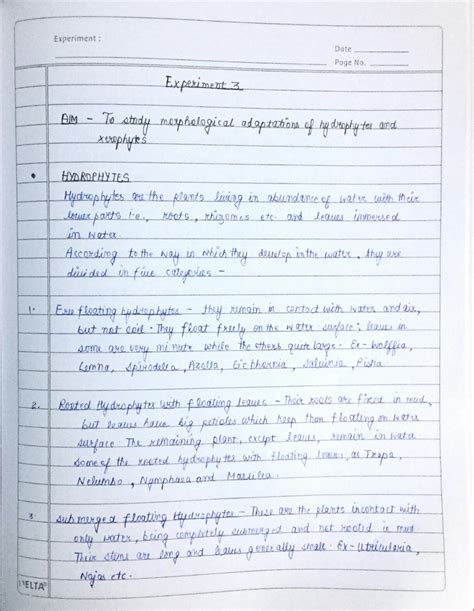 Experiment :
Date
Page No.
Experiment 3
AIM - To study morphological adaptations of hydrophytes and
xerophytes
• HYDROPHYTES
Hydrophytes are the plants living in abundance of water with their
lower parts i.e., roots, rhizomes etc. and leaves immersed
in water.
According to the way in which they develop in the water, they are
divided in five categories -
1. Free floating hydrophytes - they remain in contact with water and air,
but not soil. They float freely on the water surface; leaves in
some are very minute while the others quite large. Ex- Wolffia,
Lemna, Spirodella, Azolla, Eichhornia, Salvinia, Pistia
2. Rooted Hydrophytes with floating leaves - Their roots are fixed in mud,
but leaves have big petioles which keep them floating on water
surface. The remaining plant, except leaves, remain in water
some of the rooted hydrophytes with floating leaves, as Trapa,
Nelumbo, Nymphaea and Marsilea.
3. submerged floating Hydrophytes - These are the plants in contact with
only water, being completely submerged and not rooted in mud.
Their stems are long and leaves generally small. Ex- Utricularia,
Najas etc.
DELTA